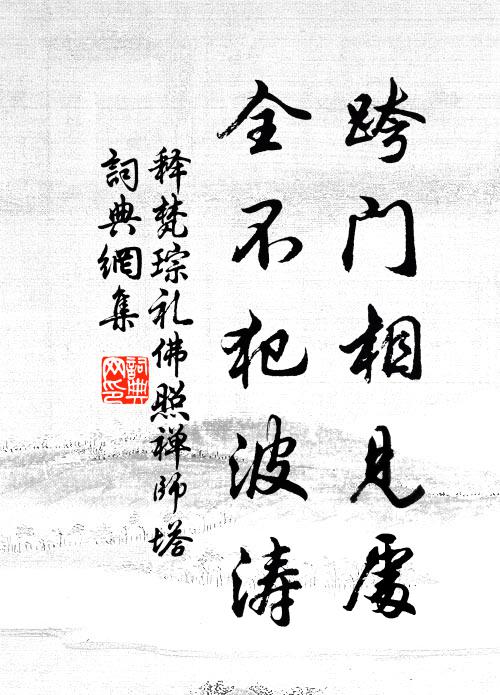 跨门相见處
全不犯波涛
释梵琮礼佛照禅师塔
詞典網集
詞典網印